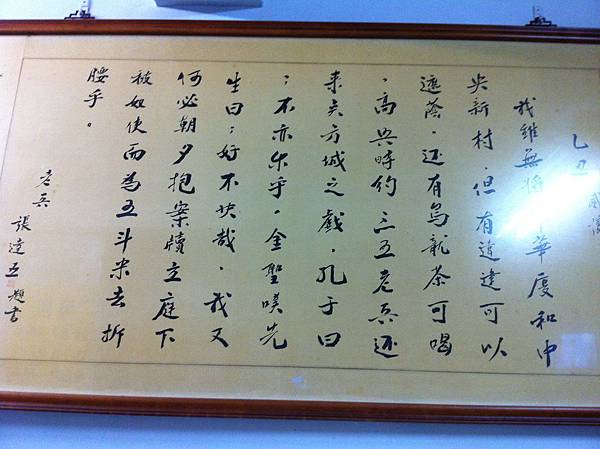 乙丑
我雖無將華廈和中
央新村.但有違建可以
遮蔭.还有烏龍茶可喝
.高興時約三五老兵还
来奌方城之戲.孔子曰
:不亦乐乎.金聖嘆先
生曰:好不快哉.我又
何必朝夕抱案牘立庭下
被奴使而為五斗米去折
腰乎。
老兵 張達五 題書